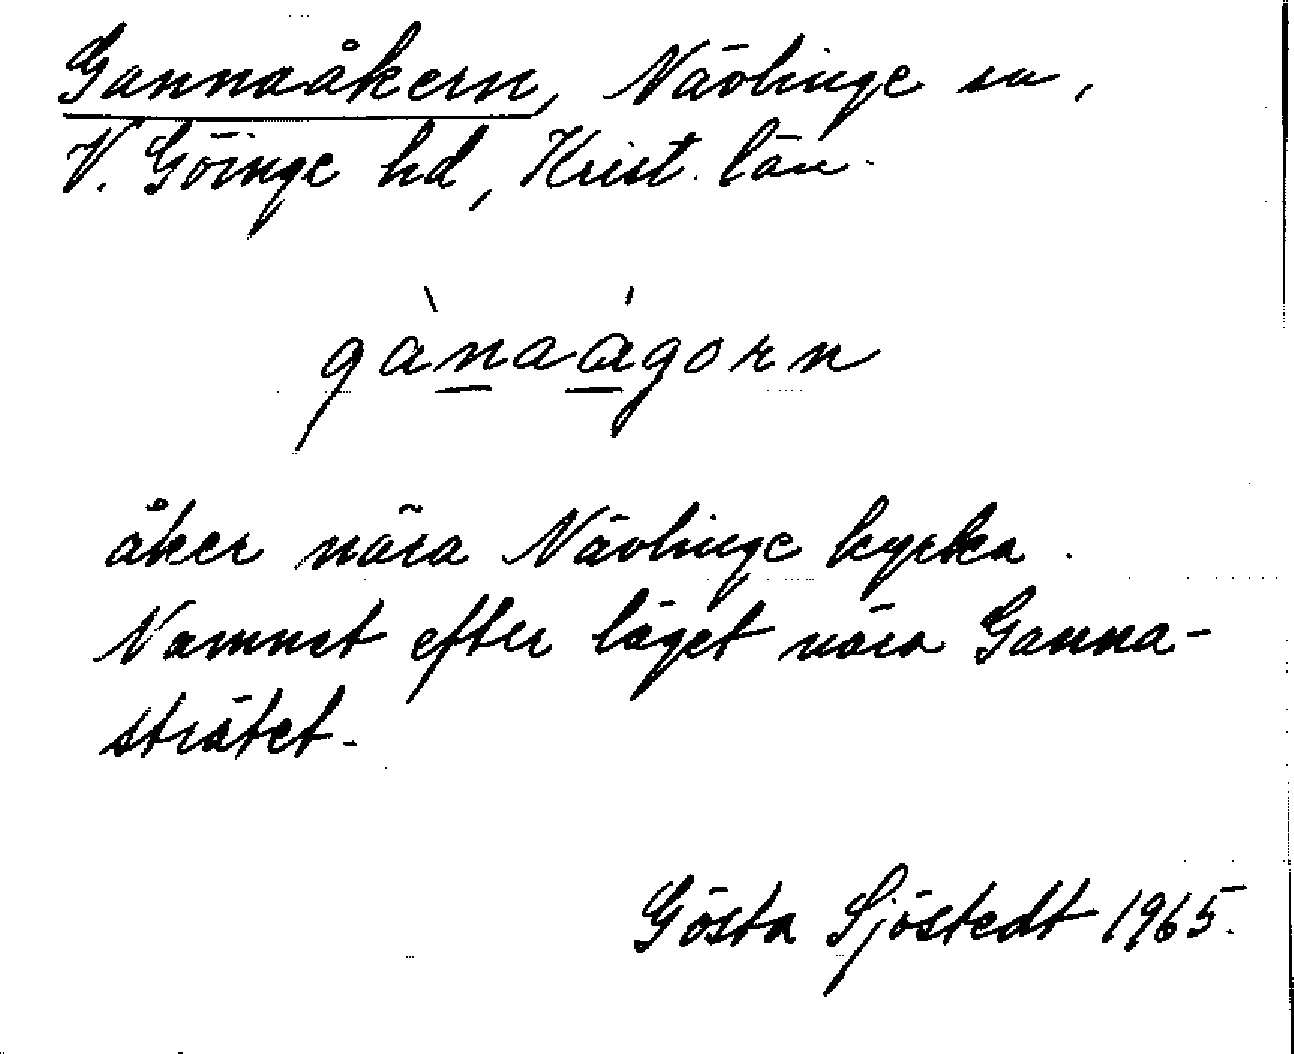 Gannaåkern, Nävlinge sn,
V. Göinge hd, Krist. län.
gànaágorn
åker nära Nävlinge kyrka.
Namnet efter läget nära Ganna-
strätet.
Gösta Sjöstedt 1965.